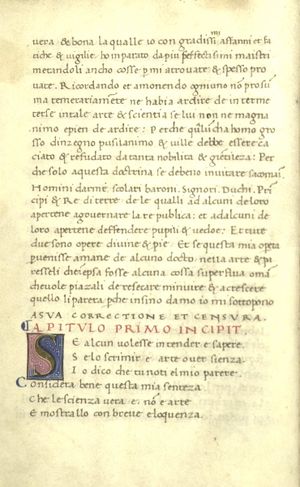 vera & bona la qualle io con gradissimi affanni et fa
tiche & vigilie ho inparato da piu perfectissimi maistri
metandoli ancho cosse p mi atrovate & spesso pro
vate. Ricordando et amonendo ogniuno nō prosu
ma temerariamēte ne habia ardire de interme
terse in tale arte & scientia se lui non ne magna
nimo e pien de ardire: Perche qualūcha homo gro
sso dinzegno pusilanimo & ville debbe essere ca
ciato & refudato da tanta nobilita & gietileza: Per
che solo aquesta doctrina se debeno invitare sacomāi
Homini darme. scolari baroni. Signori. Duchi. Prī
cipi & Re di terre. de le qualli ad alcuni de loro
apertene agovernare la re publica: et ad alcuni de
loro apertene deffendere pupilli & vedoe: Et tute
due sono opere divine & pie. Et se questa mia opeta
puenisse amane de alcuno docto. nella arte & pi
resseli che ī epsa fosse alcuna cossa superflua o mā
chevole piazali de resecare minuire & acrescere
quello li parera. pche insino damo io mi sottopono
ASVA CORRECTIONE ET CENSURA.
CAPITULO PRIMO INCIPIT.
SE alcun volesse intender e sapere.
Se lo scrimir e arte over sienza.
Io dico che tu noti el mio parere.
Considera bene questa mia senteza
Che le scienza vera e. nō e arte
E mostrallo con breve eloquenza.